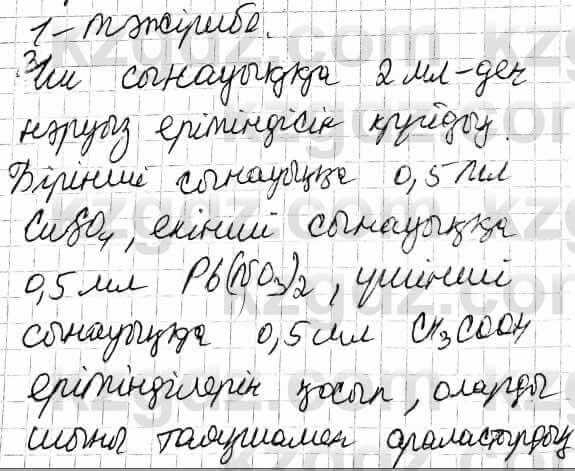 1-тәжірибе.
3 ші сынауыққа 2 мл-ден
нәруыз ерітіндісін құйдық.
Бірінші сынауыққа 0,5 мл
CuSO₄, екінші сынауыққа
0,5 мл Pb(NO₃)₂, үшінші
сынауыққа 0,5 мл CH₃COOH
ерітінділерін қосып, оларды
шыны таяқшамен араластырдық